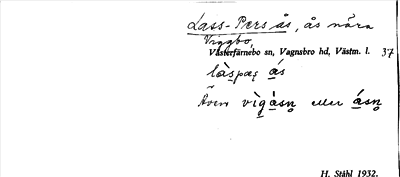 Lass-Pers ås, ås nära
Viggbo,
Västerfärnebo sn, Vagnsbro hd, Västm. l. 37
làspæṣ ás
Även vìgàsṇ eller ásṇ
H. Ståhl 1932.